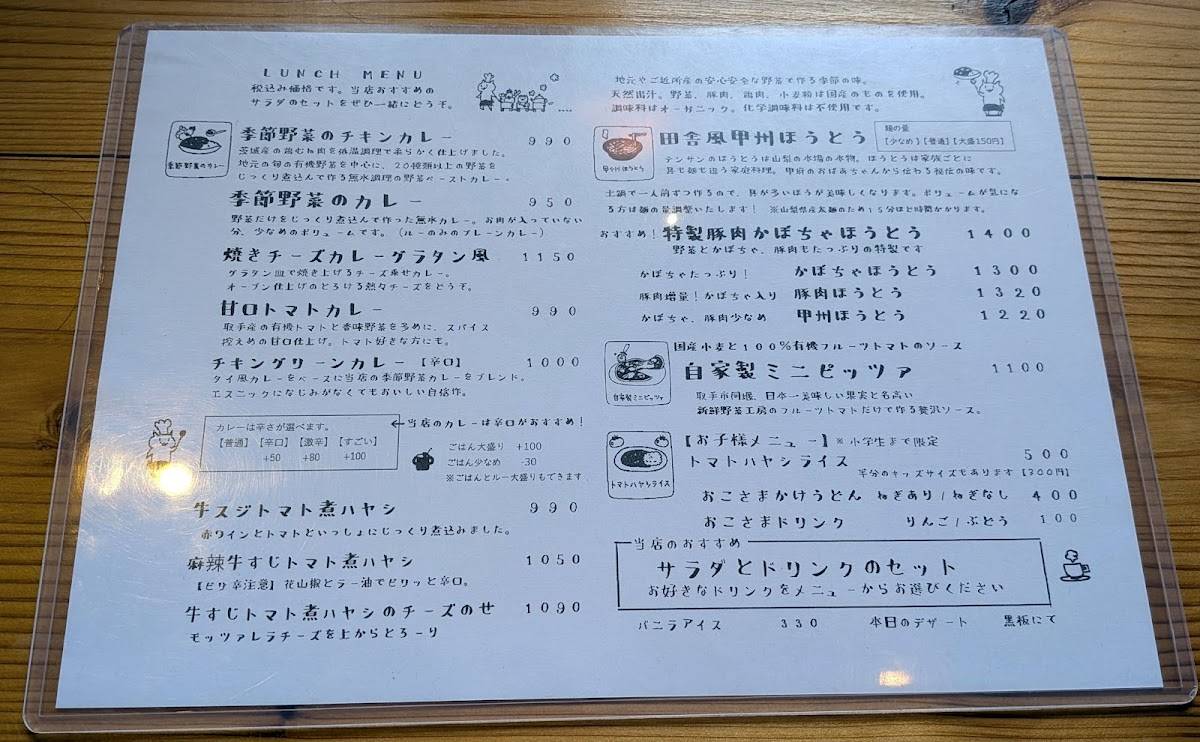 LUNCH MENU
税込み価格です。当店おすすめの
サラダのセットをぜひ一緒にどうぞ。
季節野菜のカレー
季節野菜のチキンカレー 990
茨城産の鶏むね肉を低温調理で柔らかく仕上げました。
地元の旬の有機野菜を中心に、20種類以上の野菜を
じっくり煮込んで作る無水調理の野菜ペーストカレー。
季節野菜のカレー 950
野菜だけをじっくり煮込んで作った無水カレー。お肉が入っていない
分、少なめのボリュームです。(ルーのみのプレーンカレー)
焼きチーズカレーグラタン風 1150
グラタン皿で焼き上げるチーズ乗せカレー。
オーブン仕上げのとろける熱々チーズをどうぞ。
甘口トマトカレー 990
取手産の有機トマトと香味野菜を多めに、スパイス
控えめの甘口仕上げ。トマト好きな方にも。
チキングリーンカレー【辛口】 1000
タイ風カレーをベースに当店の季節野菜カレーをブレンド。
エスニックになじみがなくてもおいしい自信作。
カレーは辛さが選べます。
【普通】【辛口】【激辛】【すごい】
+50 +80 +100
←当店のカレーは辛口がおすすめ!
ごはん大盛り +100
ごはん少なめ -30
※ごはんとルー大盛りもできます
牛スジトマト煮ハヤシ 990
赤ワインとトマトといっしょにじっくり煮込みました。
麻辣牛すじトマト煮ハヤシ 1050
【ピリ辛注意】花山椒とラー油でピリッと辛口。
牛すじトマト煮ハヤシのチーズのせ 1090
モッツァレラチーズを上からとろーり
地元やご近所産の安心安全な野菜で作る季節の味。
天然出汁。野菜、豚肉、鶏肉、小麦粉は国産のものを使用。
調味料はオーガニック。化学調味料は不使用です。
甲州ほうとう
田舎風甲州ほうとう
麺の量
【少なめ】【普通】【大盛150円】
テンサンのほうとうは山梨の本場の本物。ほうとうは家族ごとに
具も麺も違う家庭料理。甲府のおばあちゃんから伝わる秘伝の味です。
土鍋で一人前ずつ作るので、具が多いほうが美味しくなります。ボリュームが気にな
る方は麺の量調整いたします! ※山梨県産太麺のため15分ほど時間かかります。
おすすめ!特製豚肉かぼちゃほうとう 1400
野菜とかぼちゃ、豚肉もたっぷりの特製です
かぼちゃたっぷり! かぼちゃほうとう 1300
豚肉増量!かぼちゃ入り 豚肉ほうとう 1320
かぼちゃ、豚肉少なめ 甲州ほうとう 1220
自家製ミニピッツァ
国産小麦と100%有機フルーツトマトのソース
自家製ミニピッツァ 1100
取手市同地、日本一美味しい果実と名高い
新鮮野菜工房のフルーツトマトだけで作る贅沢ソース。
トマトハヤシライス
【お子様メニュー】※小学生まで限定
トマトハヤシライス 500
半分のキッズサイズもあります【300円】
おこさまかけうどん ねぎあり/ねぎなし 400
おこさまドリンク りんご/ぶどう 100
当店のおすすめ
サラダとドリンクのセット
お好きなドリンクをメニューからお選びください
バニラアイス 330 本日のデザート 黒板にて